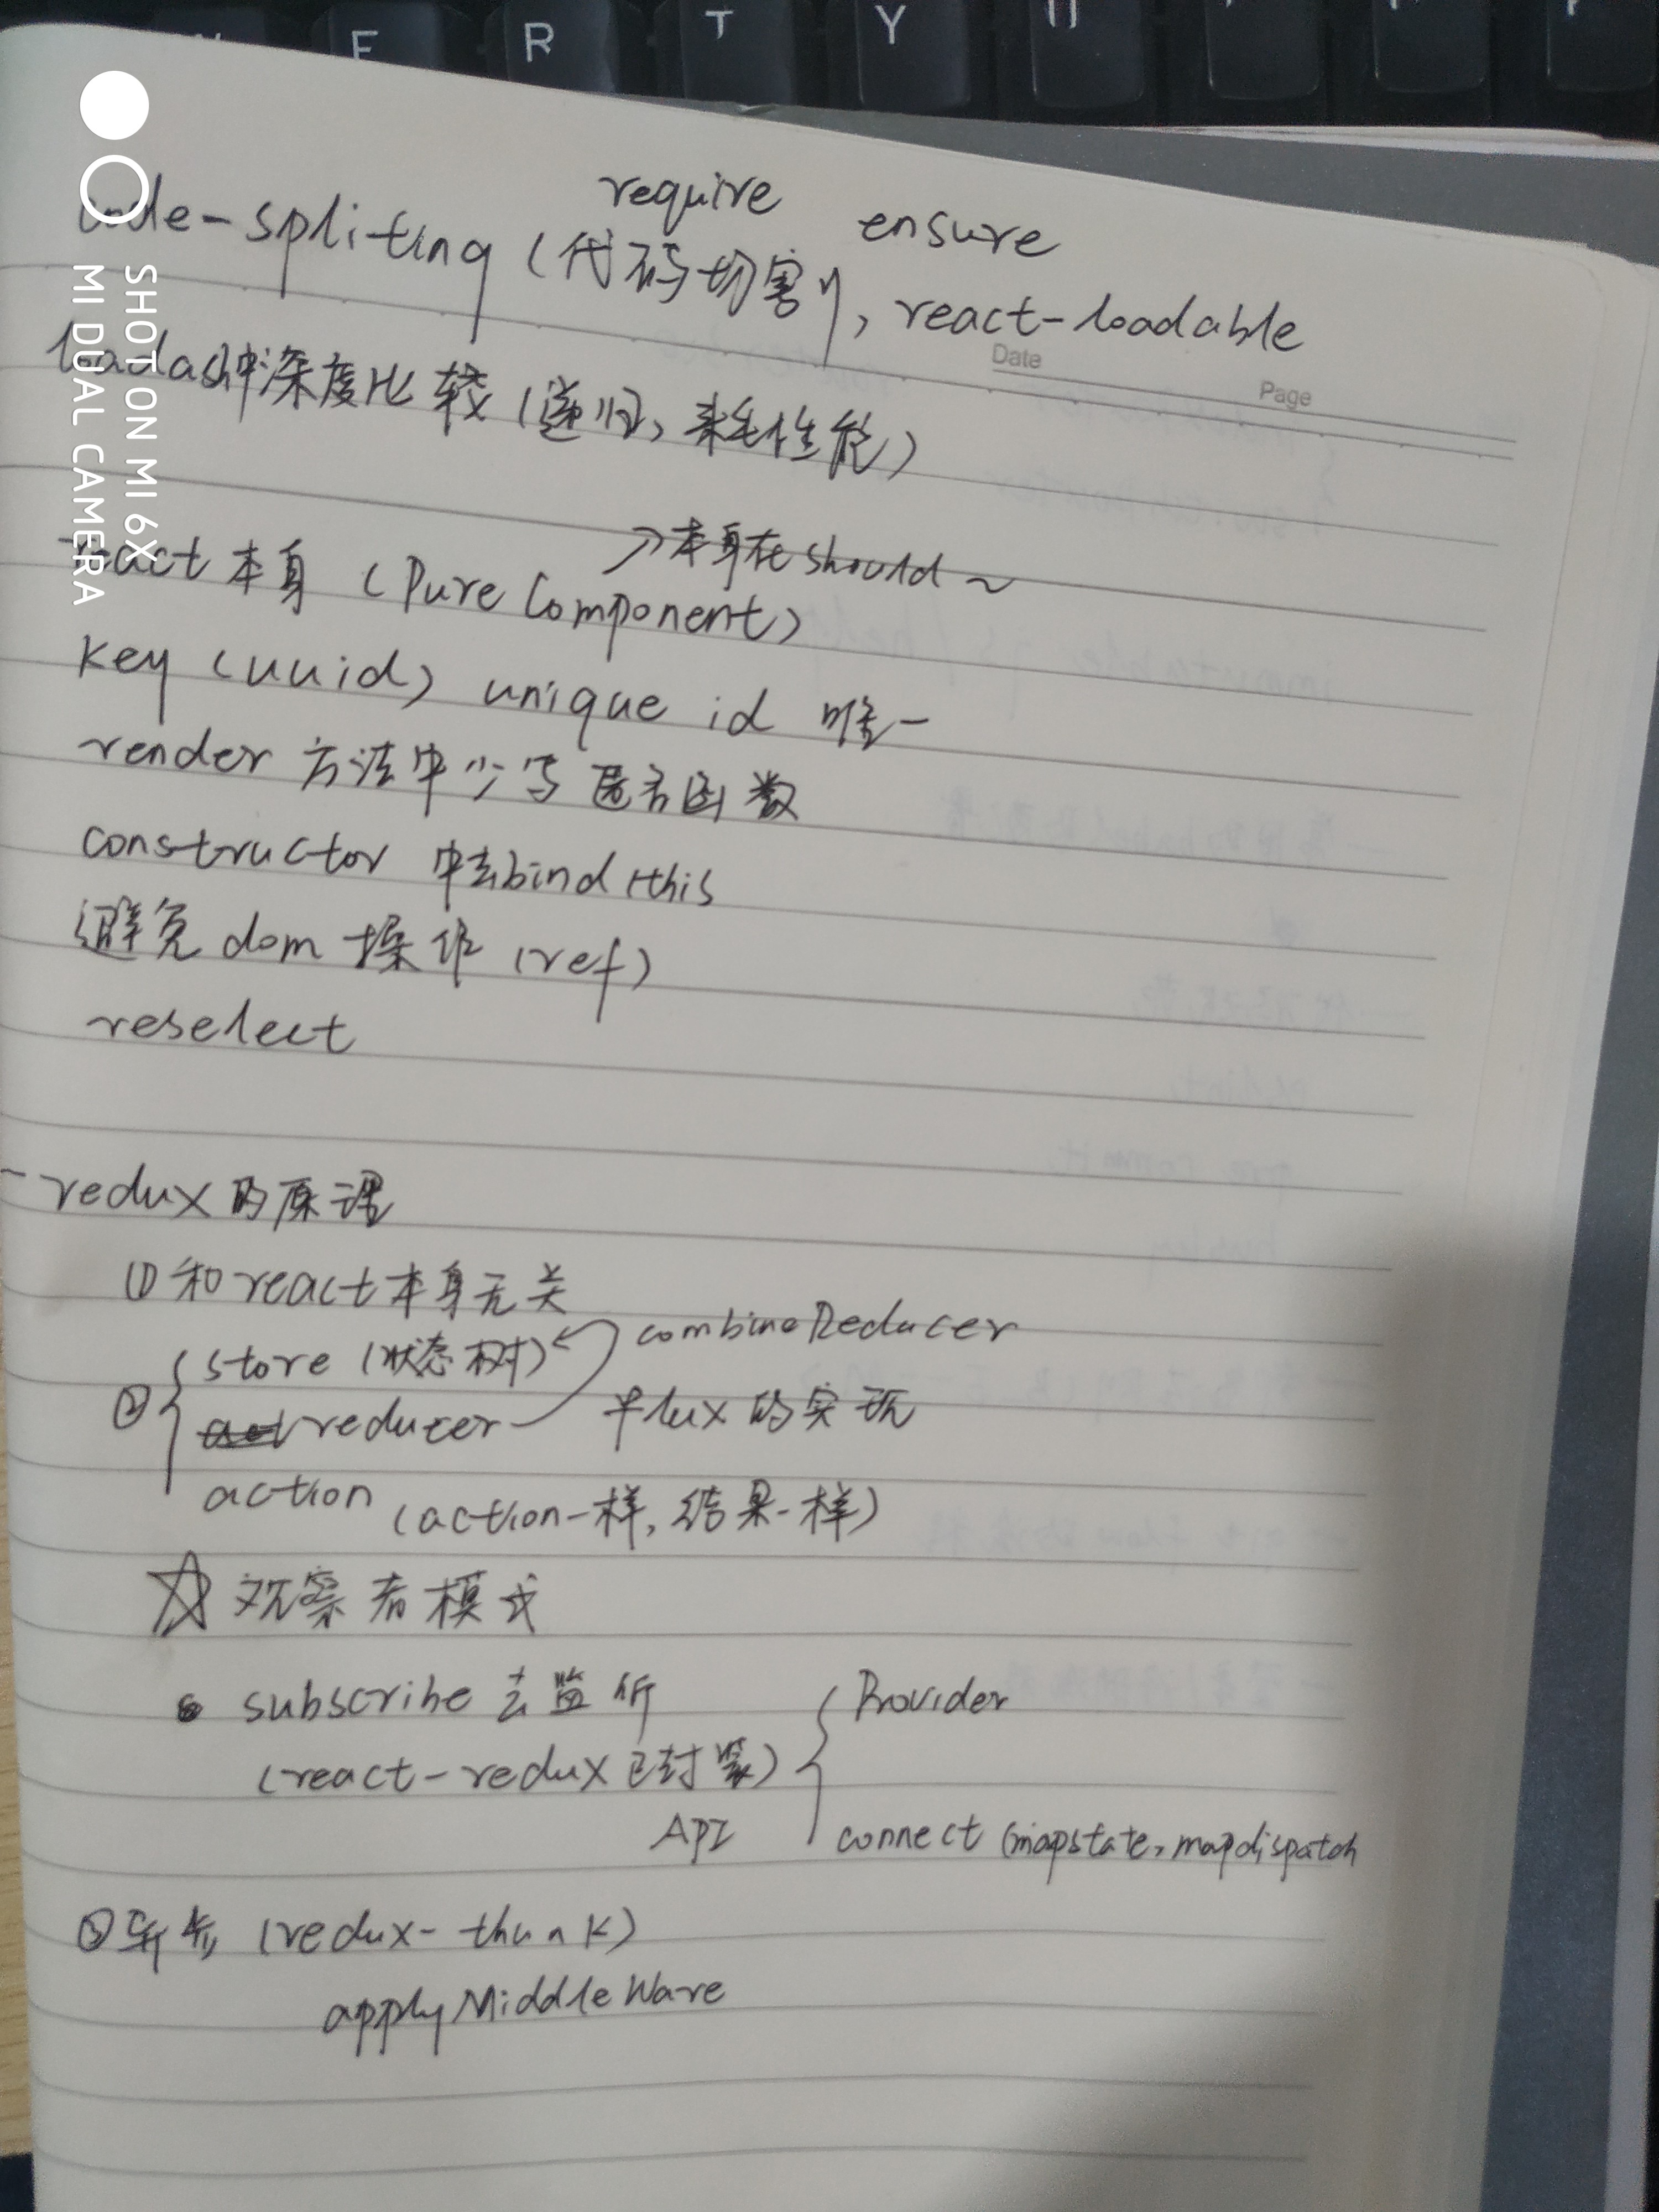 E R T Y U
SHOT ON MI 6X
MI DUAL CAMERA
require ensure
code-spliting (代码切割), react-loadable
Date
Page
loadash中深度比较 (递归, 耗性能)
→本身在should~
react 本身 (Pure Component)
key (uuid) unique id 唯一
render 方法中少写匿名函数
constructor 中去bind this
避免 dom 操作 (ref)
reselect
-redux 的原理
① 和react本身无关
store (状态树) combineReducer
② reducer flux 的实现
action (action一样, 结果一样)
☆ 观察者模式
subscribe 去监听 Provider
(react-redux 已封装)
API connect (mapstate, mapdispatch
(redux-thunk)
applyMiddleWare